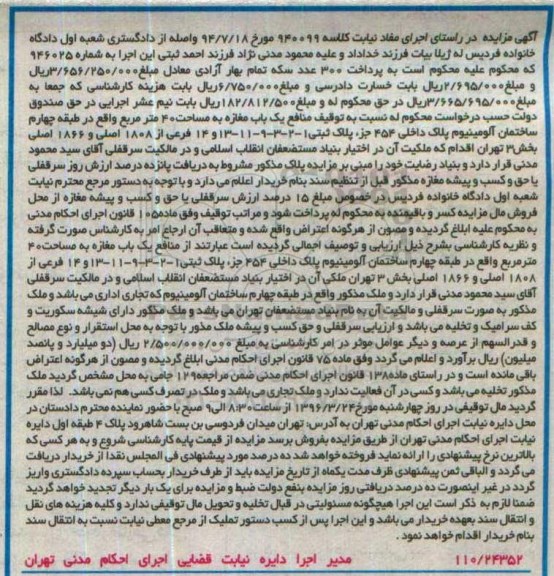 آگهی مزایده در راستای اجرای مفاد نیابت کلاسه ۹۴۰۰۹۹ مورخ ۹۴/۷/۱۸ واصله از دادگستری شعبه اول دادگاه
خانواده فردیس له ژیلا بیات فرزند خداداد و علیه محمود مدنی نژاد فرزند احمد ثبتی این اجرا به شماره ۹۴۶۰۲۵
که محکوم علیه محکوم است به پرداخت ۳۰۰ عدد سکه تمام بهار آزادی معادل مبلغ ۳/۶۵۶/۲۵۰/۰۰۰ریال
و مبلغ۲/۶۹۵/۰۰۰ریال بابت خسارت دادرسی و مبلغ۶/۷۵۰/۰۰۰ریال بابت هزینه کارشناسی که جمعا به
مبلغ۳/۶۶۵/۶۹۵/۰۰۰ریال در حق محکوم له و مبلغ۱۸۲/۸۱۲/۵۰۰ریال بابت نیم عشر اجرایی در حق صندوق
دولت حسب درخواست محکوم له نسبت به توقیف منافع یک باب مغازه به مساحت۴۰ متر مربع واقع در طبقه چهارم
ساختمان آلومینیوم پلاک داخلی ۴۵۴ جز، پلاک ثبتی۱-۲-۳-۹-۱۱-۱۳و ۱۴ فرعی از ۱۸۰۸ اصلی و ۱۸۶۶ اصلی
بخش۳ تهران اقدام که ملکیت آن در اختیار بنیاد مستضعفان انقلاب اسلامی و در مالکیت سرقفلی آقای سید محمود
مدنی قرار دارد و بنیاد رضایت خود را مبنی بر مزایده پلاک مذکور مشروط به دریافت پانزده درصد ارزش روز سرقفلی
یا حق و کسب و پیشه مغازه مذکور قبل از تنظیم سند بنام خریدار اعلام می دارد و با توجه به دستور مرجع محترم نیابت
شعبه اول دادگاه خانواده فردیس در خصوص مبلغ ۱۵ درصد ارزش سرقفلی یا حق و کسب و پیشه مغازه از محل
فروش مال مزایده کسر و باقیمانده به محکوم له پرداخت شود و مراتب توقیف وفق ماده۵۱ قانون اجرای احکام مدنی
به محکوم علیه ابلاغ گردیده و مصون از هرگونه اعتراض واقع شده و متعاقب آن ارجاع امر به کارشناس صورت گرفته
و نظریه کارشناسی بشرح ذیل ارزیابی و توصیف اجمالی گردیده است عبارتند از منافع یک باب مغازه به مساحت۴۰
مترمربع واقع در طبقه چهارم ساختمان آلومینیوم پلاک داخلی ۴۵۴ جز، پلاک ثبتی۱-۲-۳-۹-۱۱-۱۳و ۱۴ فرعی از
۱۸۰۸ اصلی و ۱۸۶۶ اصلی بخش ۳ تهران ملکی آن در اختیار بنیاد مستضعفان انقلاب اسلامی و در مالکیت سرقفلی
آقای سید محمود مدنی قرار دارد و ملک مذکور واقع در طبقه چهارم ساختمان آلومینیوم که تجاری اداری می باشد و ملک
مذکور به صورت سرقفلی و مالکیت آن به نام بنیاد مستضعفان تهران می باشد و ملک مذکور دارای شیشه سکوریت و
کف سرامیک و تخلیه می باشد و ارزیابی سرقفلی و حق کسب و پیشه ملک مذور با توجه به محل استقرار و نوع مصالح
و قدرالسهم از عرصه و دیگر عوامل موثر در امر کارشناسی به مبلغ ۲/۵۰۰/۰۰۰/۰۰۰ ریال (دو میلیارد و پانصد
میلیون) ریال برآورد و اعلام می گردد وفق ماده ۷۵ قانون اجرای احکام مدنی ابلاغ گردیده و مصون از هرگونه اعتراض
باقی مانده است و در راستای ماده۱۳۸ قانون اجرای احکام مدنی ضمن مراجعه ۱۲۹ جامی به محل مشخص گردید ملک
مذکور تخلیه می باشد و کسی در آن فعالیت ندارد و ملک تجاری می باشد و ملک در تصرف کسی هم نمی باشد. لذا مقرر
گردید مال توقیفی در روز چهارشنبه مورخ۱۳۹۶/۳/۲۴ از ساعت ۸:۳۰ الی۹ صبح با حضور نماینده محترم دادستان در
محل دایره نیابت اجرای احکام مدنی تهران به آدرس: تهران میدان فردوسی بن بست شاهرود پلاک ۴ طبقه اول دایره
نیابت اجرای احکام مدنی تهران از طریق مزایده بفروش برسد مزایده از قیمت پایه کارشناسی شروع و به هر کسی که
بالاترین نرخ پیشنهادی را ارائه نماید فروخته خواهد شد ده درصد مورد پیشنهادی فی المجلس نقدا از خریدار دریافت
می گردد و الباقی ثمن پیشنهادی ظرف مدت یکماه از تاریخ مزایده باید از طرف خریدار بحساب سپرده دادگستری واریز
گردد در غیر اینصورت ده درصد دریافتی روز مزایده بنفع دولت ضبط و مزایده برای یک بار دیگر تجدید خواهد گردید
ضمنا لازم به ذکر است این اجرا هیچگونه مسئولیتی در قبال تخلیه و تحویل مال توقیفی ندارد و کلیه هزینه های نقل
و انتقال سند بعهده خریدار می باشد و این اجرا پس از کسب دستور تملیک از مرجع معطی نیابت نسبت به انتقال سند
بنام خریدار اقدام خواهد نمود.
۱۱۰/۲۴۳۵۲ مدیر اجرا دایره نیابت قضایی اجرای احکام مدنی تهران